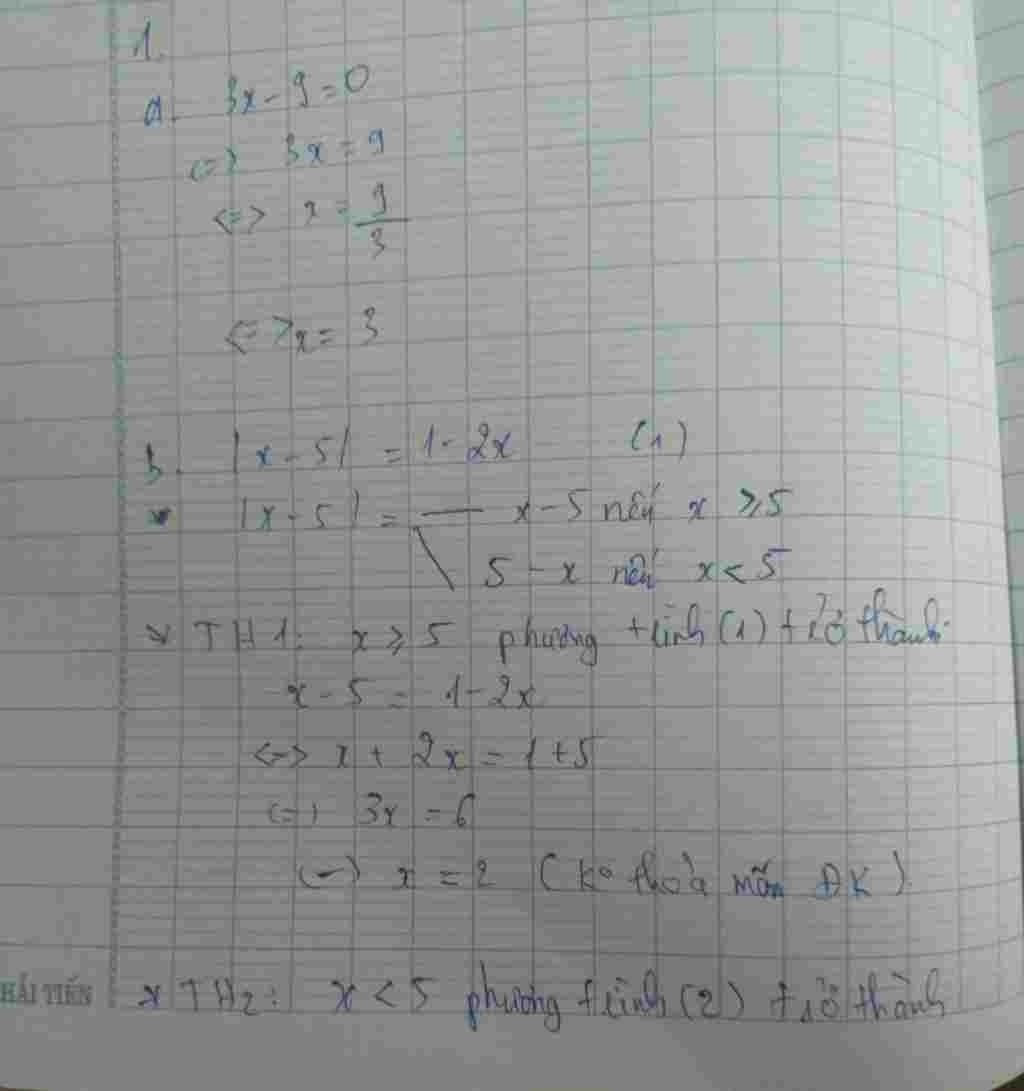 1.
a. 3x - 9 = 0
<=> 3x = 9
<=> x = 9/3
<=> x = 3
b. |x - 5| = 1 - 2x (1)
* |x - 5| = x - 5 nếu x ≥ 5
5 - x nếu x < 5
* TH1: x ≥ 5 phương trình (1) trở thành
x - 5 = 1 - 2x
<=> x + 2x = 1 + 5
<=> 3x = 6
<=> x = 2 (ko thoả mãn ĐK)
HẢI TIẾN
* TH2: x < 5 phương trình (2) trở thành